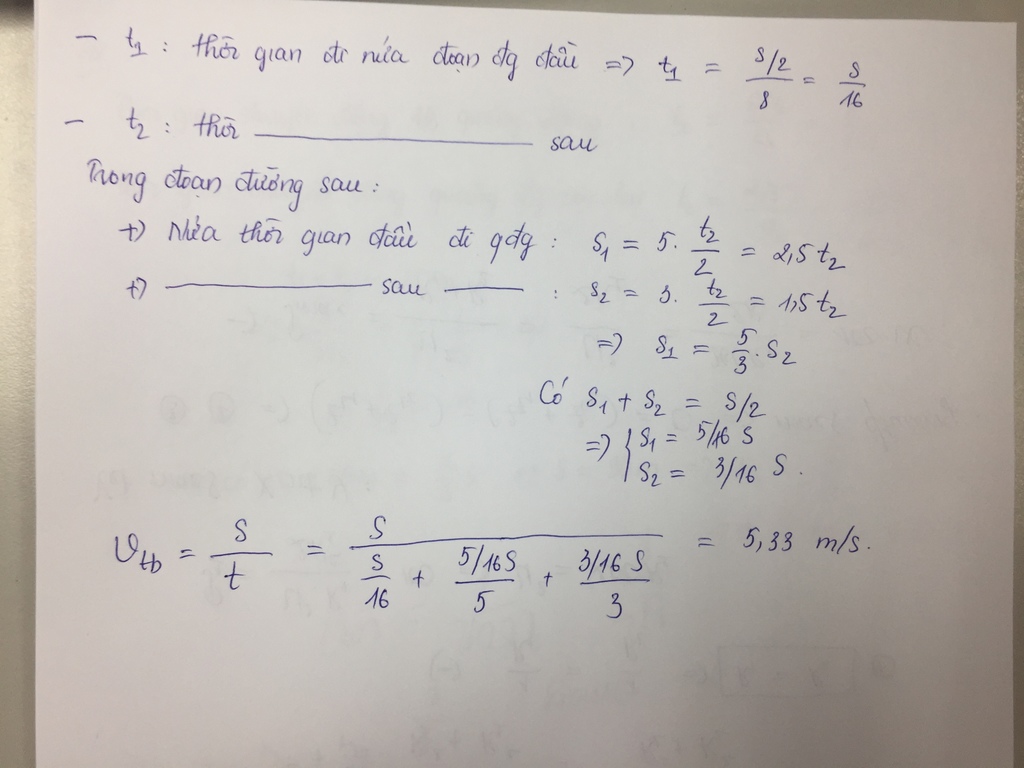 - t1 : thời gian đi nửa đoạn đg đầu => t1 = (s/2)/8 = s/16
- t2 : thời ________ sau
Trong đoạn đường sau :
+) Nửa thời gian đầu đi qđg : s1 = 5. t2/2 = 2,5 t2
+) ________ sau ____ : s2 = 3. t2/2 = 1,5 t2
=> s1 = 5/3 . s2
Có s1 + s2 = s/2
=> { s1 = 5/16 s
s2 = 3/16 s.
vtb = s/t = s/(s/16 + (5/16s)/5 + (3/16s)/3) = 5,33 m/s.